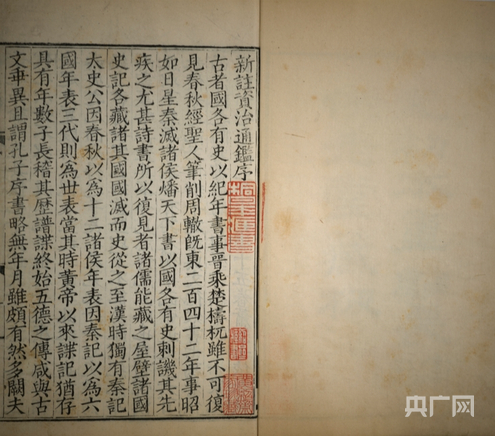 新註資治通鑑序
古者國各有史以紀年書事晉乘楚檮杌雖不可復
見春秋經聖人筆削周轍既東二百四十二年事昭
如日星秦滅諸侯燔天下書以國各有史刺譏其先
疾之尤甚詩書所以復見者諸儒能藏之屋壁諸國
史記各藏諸其國國滅而史從之至漢時獨有秦記
太史公因春秋以為十二諸侯年表因秦記以為六
國年表三代則為世表當其時黃帝以來諜記猶存
具有年數子長稽其歷譜諜終始五德之傳咸與古
文乖異且謂孔子序書略無年月雖頗有然多闕夫
央广网
www.cnr.cn